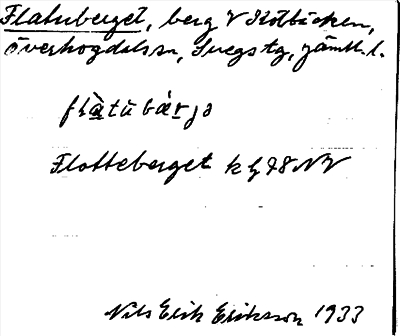 Flatuberget, berg V Kölbäcken,
överhogdals sn, Svegs tg, Jämtl. l.
flàtubærjə
Flotteberget k bl 78 NV
Nils Erik Eriksson 1933